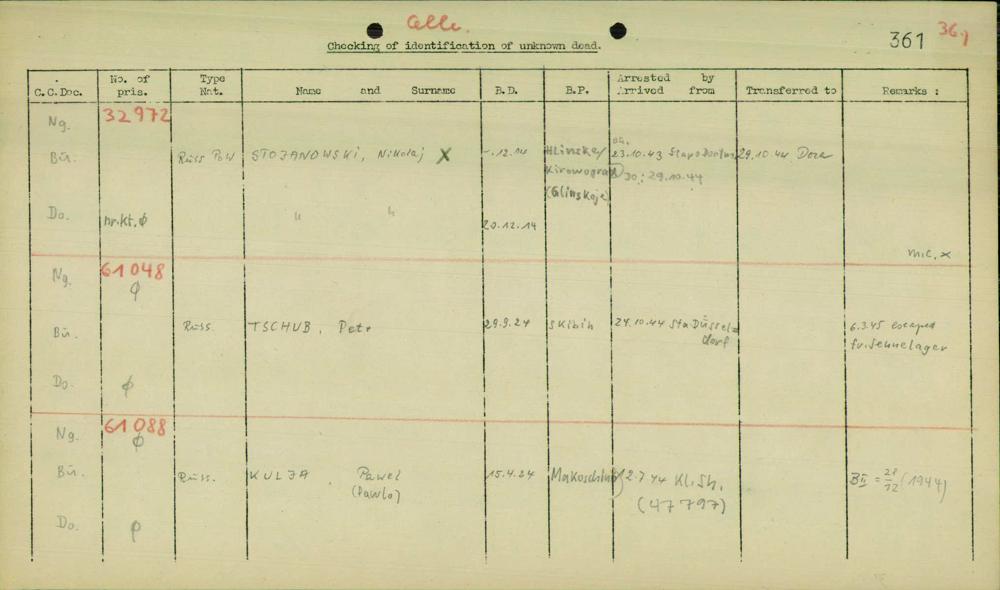 Celle.
Checking of identification of unknown dead.
361 36.1
C.C.Doc. No. of pris. Type Nat. Name and Surname B.D. B.P. Arrested by Arrived from Transferred to Remarks :
Ng. 32972
Bü. Russ PoW STOJANOWSKI, Nikolaj X -.12.14 23.10.43 29.10.44 Dora
Kirowograd 29.10.44
(Glinskoje)
Do. nr.kt. φ " " 20.12.14
m.c. x
Ng. 61048
φ
Bü. Russ. TSCHUB, Petr 29.9.24 Skibin 24.10.44 Sta Düssel=
dorf
6.3.45 escaped
fr. Sennelager
Do. φ
Ng. 61088
φ
Bü. Russ. KULJA, Pawel 15.4.24 2.7.44 Kl. Sh.
(Pawlo) (47797)
BII = 28/12 (1944)
Do. φ